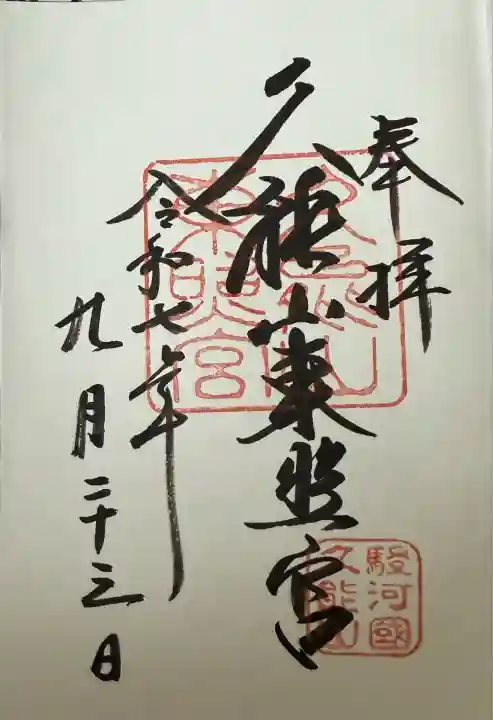 奉拝
久能山東照宮
令和七年
九月二十三日
久能山東照宮
駿河國久能山